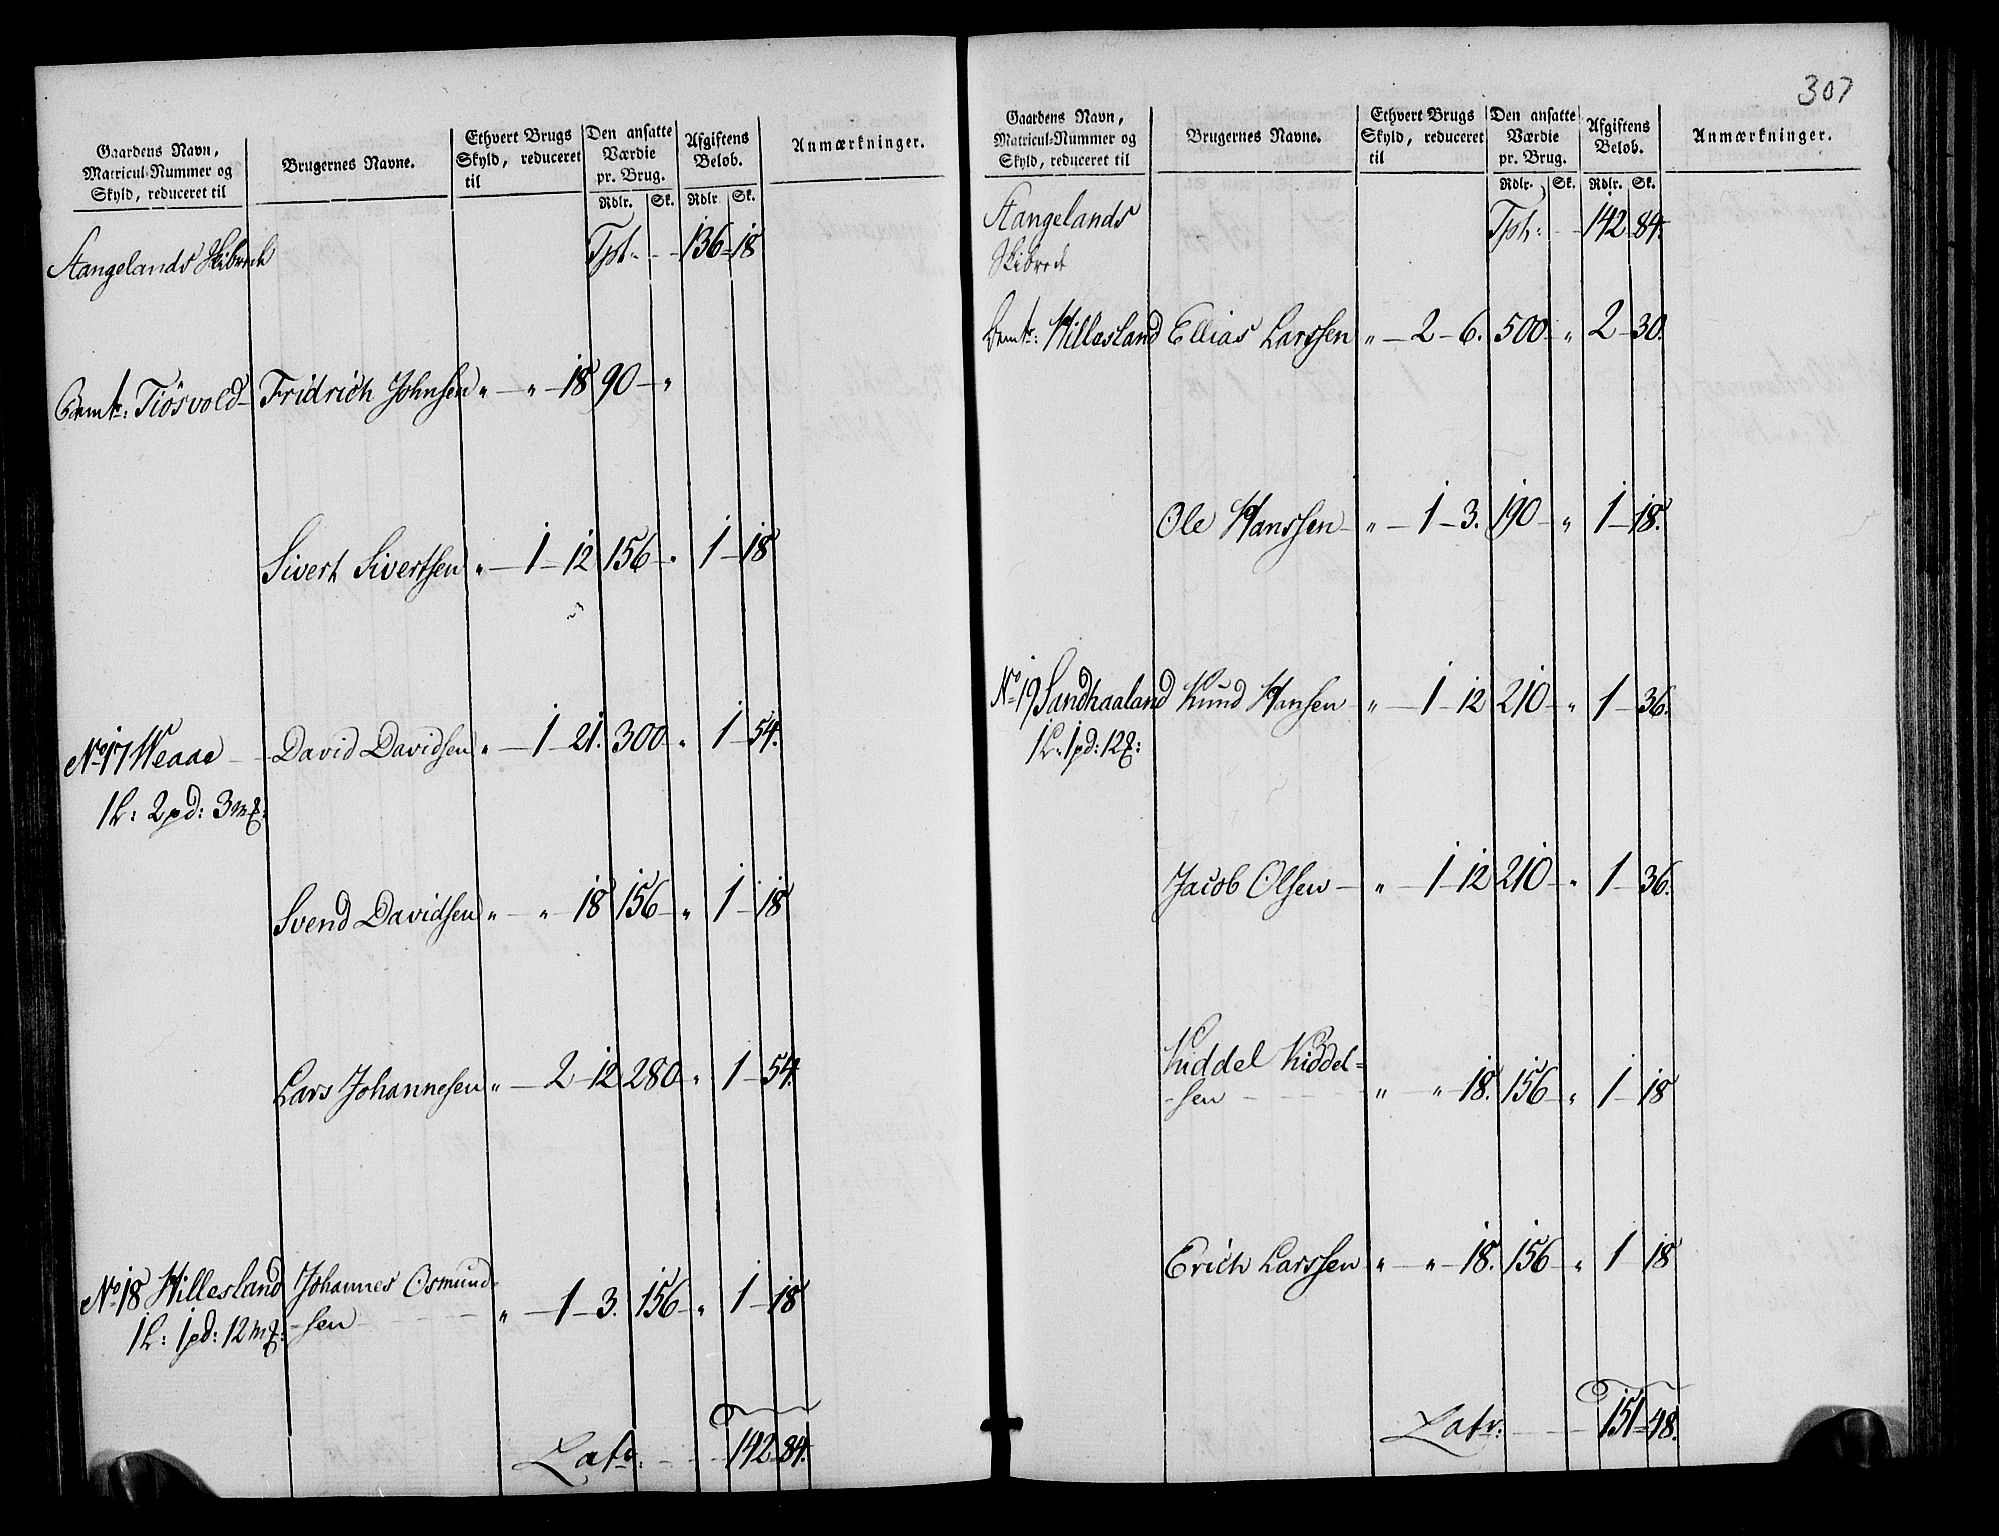 Gaardens Navn, Matricul-Nummer og Skyld, reduceret til | Brugernes Navne. | Ethvert Brugs Skyld, reduceret til | Den ansatte Værdie pr. Brug. | Afgiftens Beløb. | Anmærkninger.
Rdlr. Sk. Rdlr Sk.
Stangelands Skibrede Tpt: 136-18
Bemte: Tiøsvold Fridrich Johnsen " — " — 18 90 — "
Sivert Sivertsen " — 1 — 12 156 — " 1 — 18
No 17 Weaae David Davidsen " — 1 — 21. 300 " 1 — 54.
1 L: 2 pd: 3 mk:
Svend Davidsen " — " — 18 156 — " 1 — 18
Lars Johannesen " — 2 — 12 280 " 1 — 54.
No 18 Hillesland Johannes Osmund-
1 L: 1 pd: 12 mk: -sen " — 1 — 3. 156 — " 1 — 18
Latr: 142 84.
307
Gaardens Navn, Matricul-Nummer og Skyld, reduceret til | Brugernes Navne. | Ethvert Brugs Skyld, reduceret til | Den ansatte Værdie pr. Brug. | Afgiftens Beløb. | Anmærkninger.
Rdlr. Sk. Rdlr. Sk.
Stangelands Tpt: 142 84.
Skibrede
Bemte: Hillesland Ellias Larssen " — 2 — 6. 500 — " 2 — 30.
Ole Hanssen " — 1 — 3. 190 — " 1 — 18.
No 19 Sandhaaland Knud Hansen " — 1 — 12 210 — " 1 — 36.
1 L: 1 pd: 12 mk:
Jacob Olsen — " — 1 — 12 210 — " 1 — 36.
Kiddel Kiddel=
-sen " " — 18. 156 — " 1 — 18
Erich Larssen " — " — 18. 156 — " 1 — 18
Latr: 151 48.